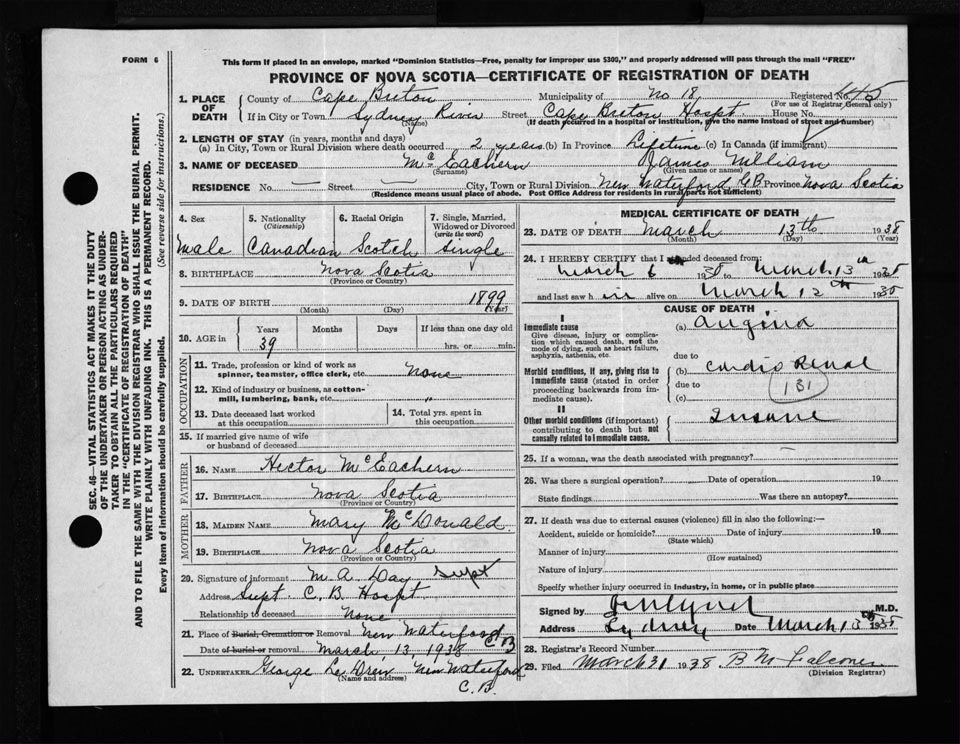 FORM 6
This form if placed in an envelope, marked "Dominion Statistics—Free, penalty for improper use $300," and properly addressed will pass through the mail "FREE"
PROVINCE OF NOVA SCOTIA—CERTIFICATE OF REGISTRATION OF DEATH
1. PLACE OF DEATH
County of Cape Breton Municipality of No 18 Registered No.
(For use of Registrar General only)
If in City or Town Sydney River Street Cape Breton Hospt House No.
(Name) (If death occurred in a hospital or institution, give the name instead of street and number)
2. LENGTH OF STAY (in years, months and days)
(a) In City, Town or Rural Division where death occurred 2 years (b) In Province Lifetime (c) In Canada (if immigrant)
3. NAME OF DECEASED McEachern James William
(Surname) (Given name or names)
RESIDENCE No. — Street — City, Town or Rural Division New Waterford, C.B. Province Nova Scotia
(Residence means usual place of abode. Post Office Address for residents in rural parts not sufficient)
4. Sex
Male
5. Nationality
(Citizenship)
Canadian
6. Racial Origin
Scotch
7. Single, Married, Widowed or Divorced
(write the word)
Single
8. BIRTHPLACE Nova Scotia
(Province or Country)
9. DATE OF BIRTH 1899
(Month) (Day) (Year)
10. AGE in
Years Months Days If less than one day old
39 hrs. or min.
OCCUPATION
11. Trade, profession or kind of work as spinner, teamster, office clerk, etc. None
12. Kind of industry or business, as cotton-mill, lumbering, bank, etc. "
13. Date deceased last worked at this occupation
14. Total yrs. spent in this occupation
15. If married give name of wife or husband of deceased
FATHER
16. NAME Hector McEachern
17. BIRTHPLACE Nova Scotia
(Province or Country)
MOTHER
18. MAIDEN NAME Mary McDonald
19. BIRTHPLACE Nova Scotia
(Province or Country)
20. Signature of informant M. A. Day Supt
Address Supt. C. B. Hospt.
Relationship to deceased None
21. Place of Burial, Cremation or Removal New Waterford C B
Date of burial or removal March, 13, 1938
22. UNDERTAKER George Le Drew New Waterford
(Name and address)
C. B.
MEDICAL CERTIFICATE OF DEATH
23. DATE OF DEATH March 13th 1938
(Month) (Day) (Year)
24. I HEREBY CERTIFY that I attended deceased from:
March 6 1938 to March 13th 1938
and last saw him alive on March 12th 1938
CAUSE OF DEATH
I
Immediate cause
Give disease, injury or complication which caused death, not the mode of dying, such as heart failure, asphyxia, asthenia, etc.
(a) Angina
due to
Morbid conditions, if any, giving rise to immediate cause (stated in order proceeding backwards from immediate cause).
(b) Cardio Renal
due to 131
(c)
II
Other morbid conditions (if important) contributing to death but not causally related to immediate cause.
Insane
25. If a woman, was the death associated with pregnancy? —
26. Was there a surgical operation? Date of operation 19
State findings Was there an autopsy?
27. If death was due to external causes (violence) fill in also the following:—
Accident, suicide or homicide? Date of injury 19
(State which)
Manner of injury
(How sustained)
Nature of injury
Specify whether injury occurred in industry, in home, or in public place
Signed by M.D.
Address Sydney Date March 13th 1938
28. Registrar's Record Number
29. Filed March 31 1938 B M Falconer
(Division Registrar)
SEC. 46—VITAL STATISTICS ACT MAKES IT THE DUTY
OF THE UNDERTAKER OR PERSON ACTING AS UNDER-
TAKER TO OBTAIN ALL THE PARTICULARS REQUIRED
IN THE "CERTIFICATE OF REGISTRATION OF DEATH"
AND TO FILE THE SAME WITH THE DIVISION REGISTRAR WHO SHALL ISSUE THE BURIAL PERMIT.
WRITE PLAINLY WITH UNFADING INK. THIS IS A PERMANENT RECORD.
Every item of information should be carefully supplied. (See reverse side for instructions.)